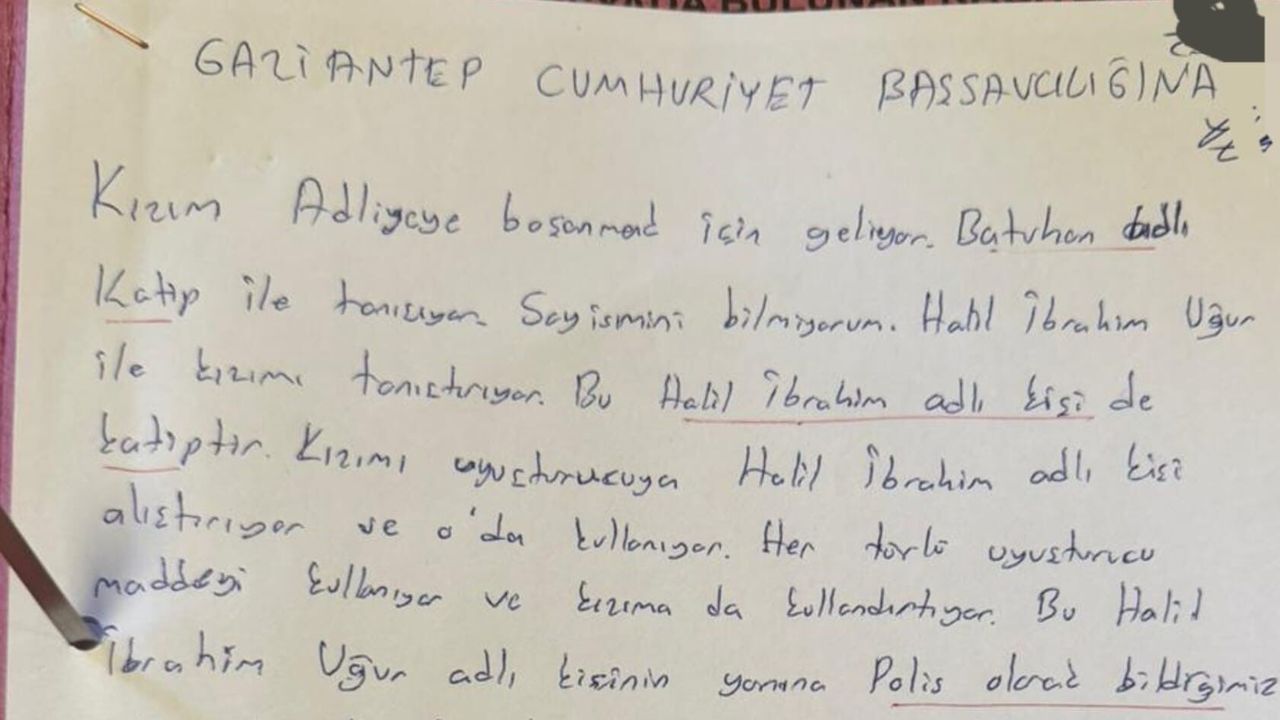 GAZİANTEP CUMHURİYET BAŞSAVCILIĞINA
Kızım Adliyeye boşanmak için geliyor. Batuhan adlı
Katip ile tanışıyor. Soyismini bilmiyorum. Halil İbrahim Uğur
ile kızımı tanıştırıyor. Bu Halil İbrahim adlı kişi de
katiptir. Kızımı uyuşturucuya Halil İbrahim adlı kişi
alıştırıyor ve o'da kullanıyor. Her türlü uyuşturucu
maddeyi kullanıyor ve kızıma da kullandırtıyor. Bu Halil
İbrahim Uğur adlı kişinin yanına Polis olarak bildiğimiz